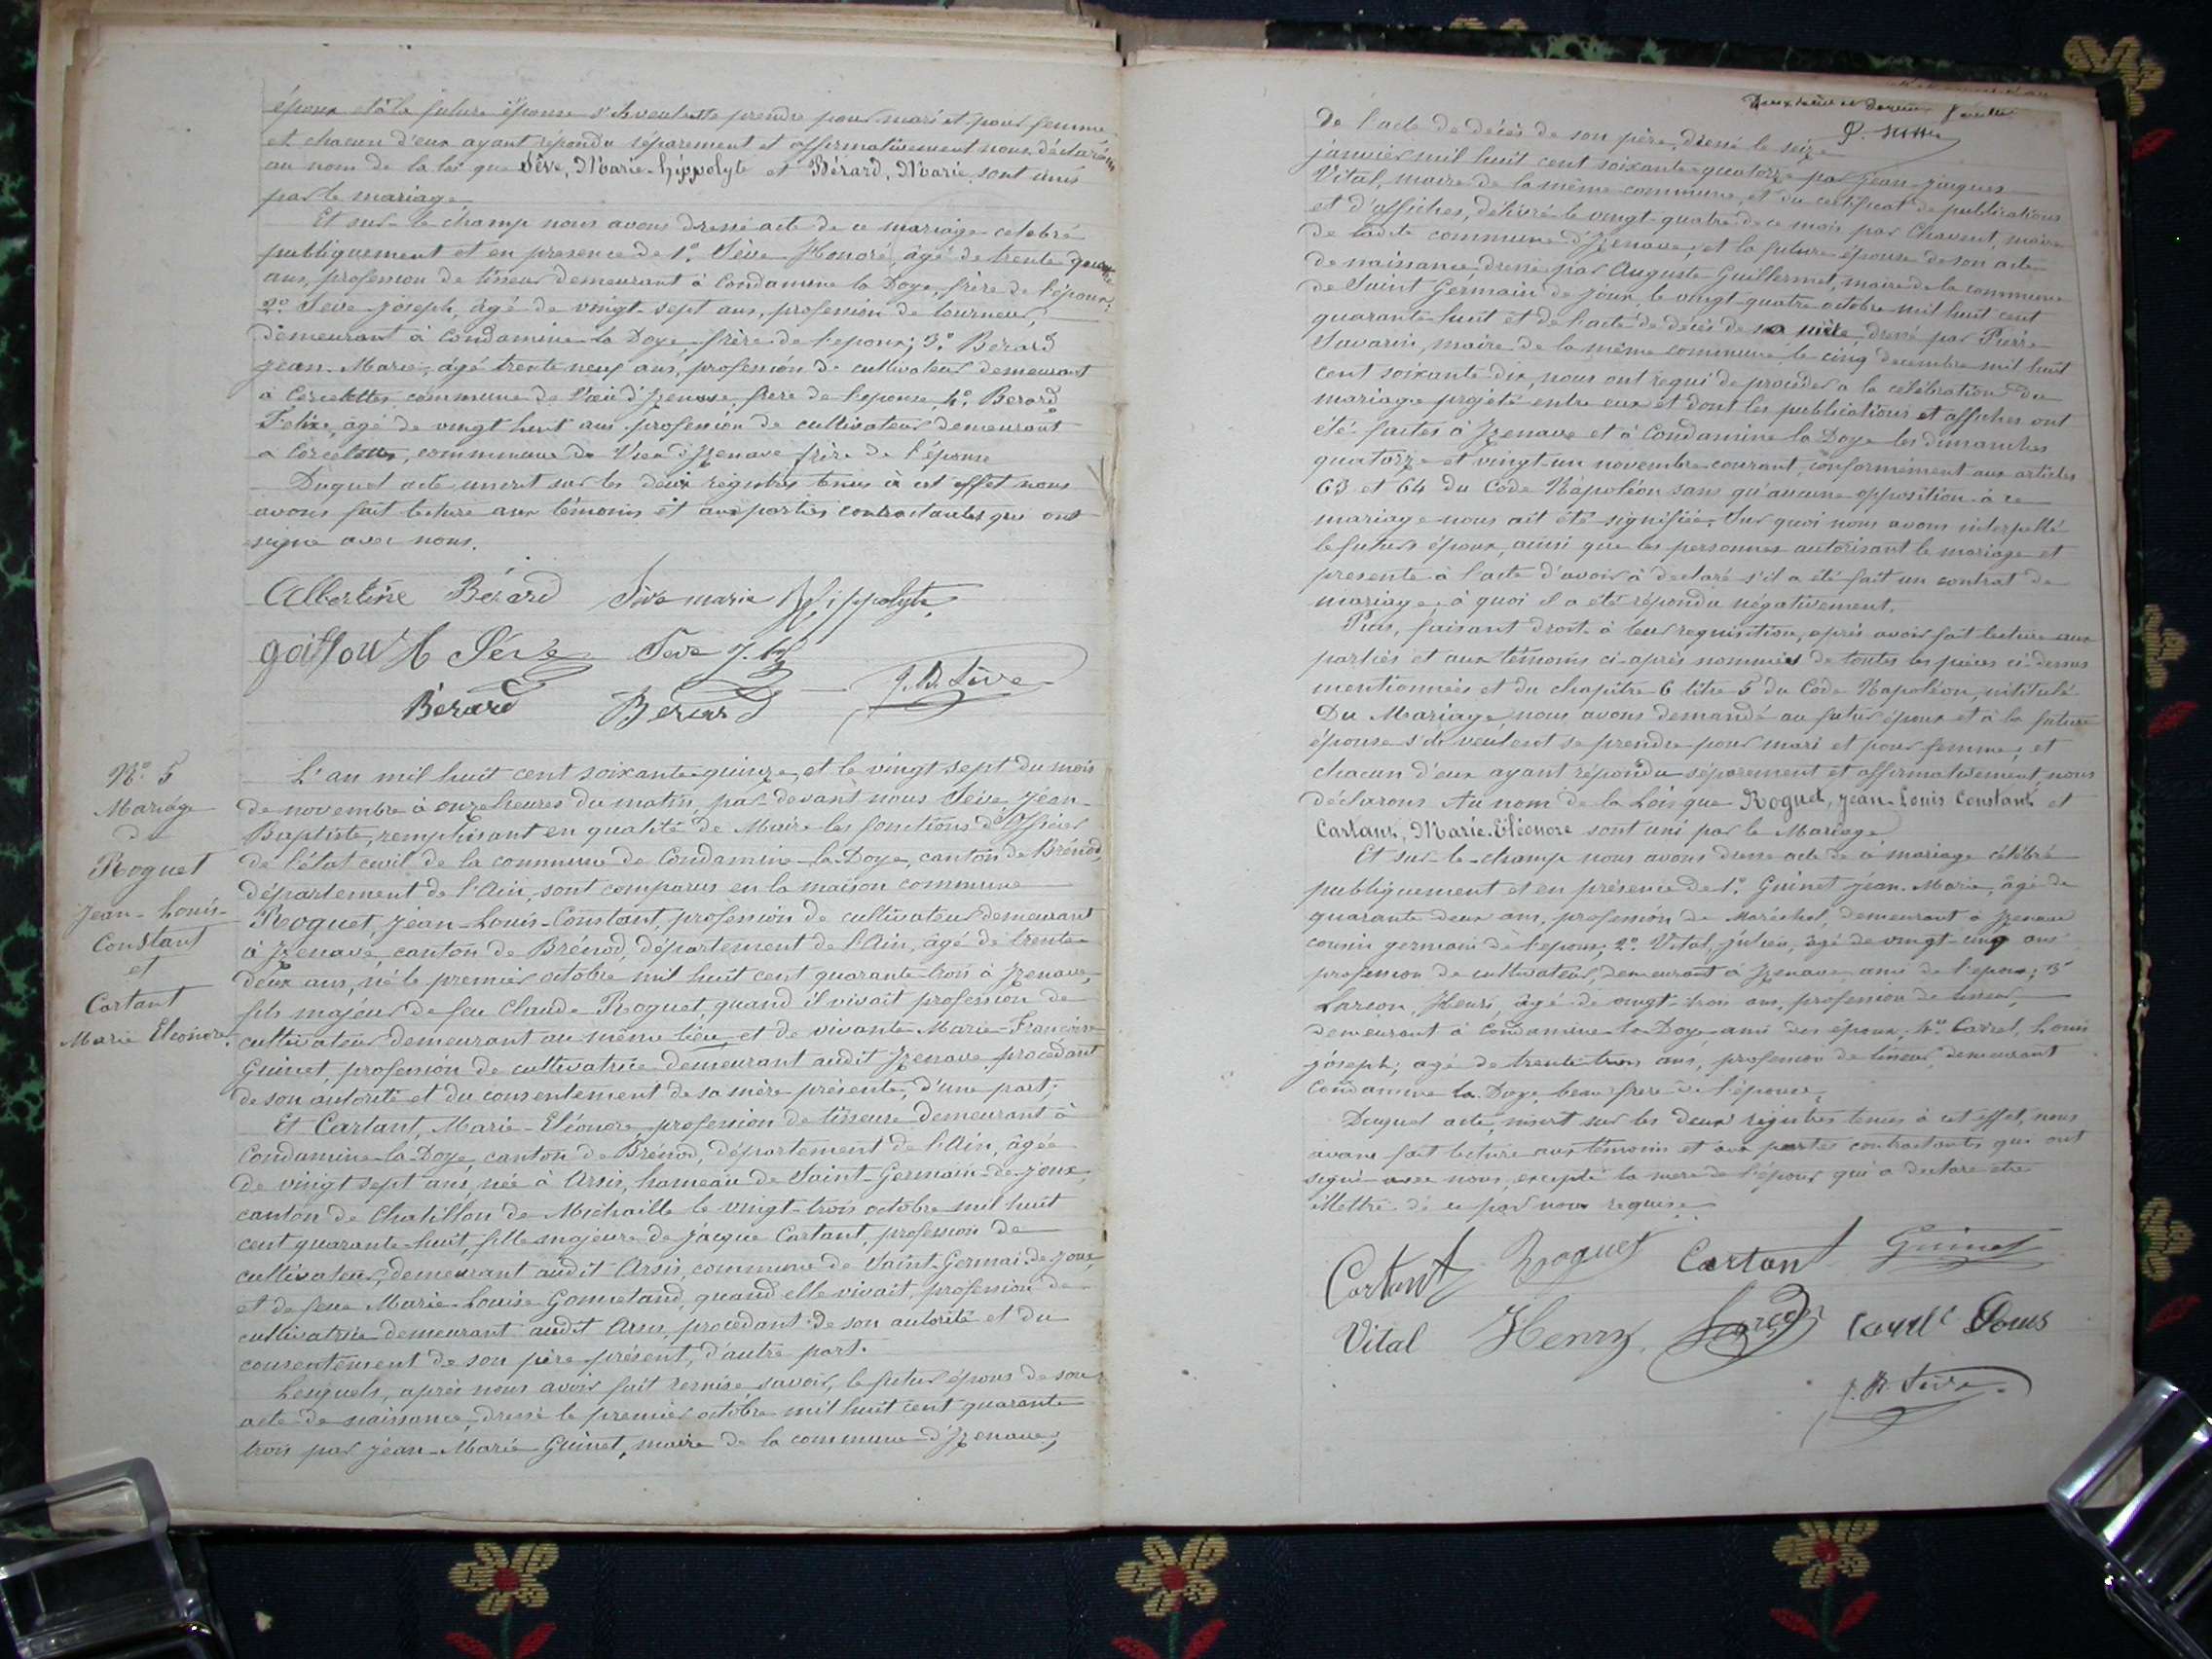 époux et à la future épouse s'ils veulent se prendre pour mari et pour femme
et chacun d'eux ayant répondu séparement et affirmativement nous déclarons
au nom de la loi que Sève, Marie-hippolyte et Bérard, Marie sont unis
par le mariage
Et sur-le champ nous avons dressé acte de ce mariage célébré
publiquement et en presence de 1º. Sève Honoré, âgé de trente quatre
ans, profession de tisseur demeurant à Condamine la Doye, frère de l'époux;
2º. Sève Joseph, âgé de vingt-sept ans, profession de tourneur,
demeurant à Condamine la Doye frère de l'epoux; 3º. Berard
Jean-Marie, âgé trente neuf ans, profession de cultivateur demeurant
à Corcelettes commune de Vieu d'Izenave, frere de l'epouse, 4º. Berard
Felix, âgé de vingt huit ans profession de cultivateur demeurant
à commune de Vieu d'Izenave frère de l'épouse
Duquel acte inscrit sur les deux registres tenus à cet effet nous
avons fait lecture aux témoins et aux parties contractantes qui ont
signé avec nous.
Albertine Bérard Sève marie Hippolyte
goiffon H Séve Seve J. M
Bérard Berard J. B. Sève
Nº. 5
Mariage
de
Roguet
Jean-Louis-
Constant
et
Cartant
Marie Eléonore.
L'an mil huit cent soixante-quinze, et le vingt sept du mois
de novembre à onze heures du matin, par-devant nous Sève, Jean-
Baptiste, remplissant en qualité de Maire les fonctions d'Officier
de l'état civil de la commune de Condamine-la-Doye, canton de Brénod,
département de l'Ain, sont comparus en la maison commune
Roguet, Jean-Louis-Constant, profession de cultivateur demeurant
à Izenave, canton de Brénod, département de l'Ain, âgé de trente-
deux ans, né le premier octobre mil huit cent quarante-trois à Izenave,
fils majeur de feu Claude Roguet, quand il vivait profession de
cultivateur demeurant au même lieu, et de vivante Marie-Françoise
Guinet, profession de cultivatrice demeurant audit Izenave procédant
de son autorité et du consentement de sa mère présente, d'une part;
Et Cartant, Marie-Eléonore profession de tisseuse demeurant à
Condamine-la-Doye, canton de Brénod, département de l'Ain, âgée
de vingt sept ans, née à Arsis, hameau de Saint-Germain-de-Joux,
canton de Chatillon de Michaille le vingt-trois octobre mil huit
cent quarante-huit, fille majeure de Jacque Cartant, profession de
cultivateur, demeurant audit Arsis, commune de Saint-Germai-de-Joux,
et de feue Marie-Louise quand elle vivait, profession de
cultivatrice demeurant audit Arsis, procédant de son autorité et du
consentement de son père présent, d'autre part.
Lesquels, après nous avoir fait remise, savoir, le futur époux de son
acte de naissance, dressé le premier octobre mil huit cent quarante
trois par Jean-Marie Guinet, maire de la commune d'Izenave;
Deuxième et dernier feuillet
de l'acte de décès de son père, dressé le seize
janvier mil huit cent soixante-quatorze par Jean-Jacques
Vital, maire de la même commune, et du certificat de publications
et d'affiches, délivré le vingt-quatre de ce mois par Chavent, maire
de ladite commune d'Izenave; et la future épouse de son acte
de naissance, dressé par Auguste Guillermet, maire de la commune
de Saint Germain de Joux le vingt-quatre octobre mil huit cent
quarante-huit et de l'acte de décès de sa mère dressé par Pierre
Savarin, maire de la même commune le cinq decembre mil huit
cent soixante dix, nous ont requi de procéder à la célébration du
mariage projeté entre eux et dont les publications et affiches ont
été faites à Izenave et à Condamine la Doye les dimanches
quatorze et vingt-un novembre courant, conformément aux articles
63 et 64 du Code Napoléon sans qu'aucune opposition à ce
mariage nous ait été signifiée. Sur quoi nous avons interpellé
le futurs époux, ainsi que les personnes autorisant le mariage et
presente à l'acte d'avoir à declaré s'il a été fait un contrat de
mariage, à quoi il a été répondu négativement.
Puis, faisant droit à leur requisition, après avoir fait lecture aux
parties et aux témoins ci-après nommés de toutes les pièces ci-dessus
mentionnées et du chapitre 6 titre 5 du Code Napoléon, intitulé
Du Mariage, nous avons demandé au futur époux et à la future
épouse s'ils veulent se prendre pour mari et pour femme, et
chacun d'eux ayant répondu séparement et affirmativement, nous
déclarons Au nom de la Loi que Roguet, Jean-Louis Constant et
Cartant, Marie-Eléonore sont uni par le Mariage
Et sur-le-champ nous avons dressé acte de ce mariage célébré
publiquement et en présence de 1º. Guinet Jean-Marie, âgé de
quarante-deux ans, profession de Maréchal, demeurant à Izenave
cousin germain de l'epoux; 2º. Vital, Julien, âgé de vingt-cinq ans
profession de cultivateur, demeurant à Izenave ami de l'epoux; 3º
Larçon, Henri, âgé de vingt-trois ans, profession de tisseur,
demeurant à Condamine-la-Doye ami des époux, 4º. Carrel, Louis
Joseph, agé de trente-trois ans, profession de tisseur demeurant
Condamine la Doye beau frere de l'épouse,
Duquel acte, inscrit sur les deux registres tenus à cet effet, nous
avons fait lecture aux témoins et aux parties contractants qui ont
signé avec nous, excepté la mère de l'époux qui a declaré etre
illettré de ce par nous requise.
Cartant Roguet Cartant Guinet
Vital Henry Larçon Louis
J. B. Sève